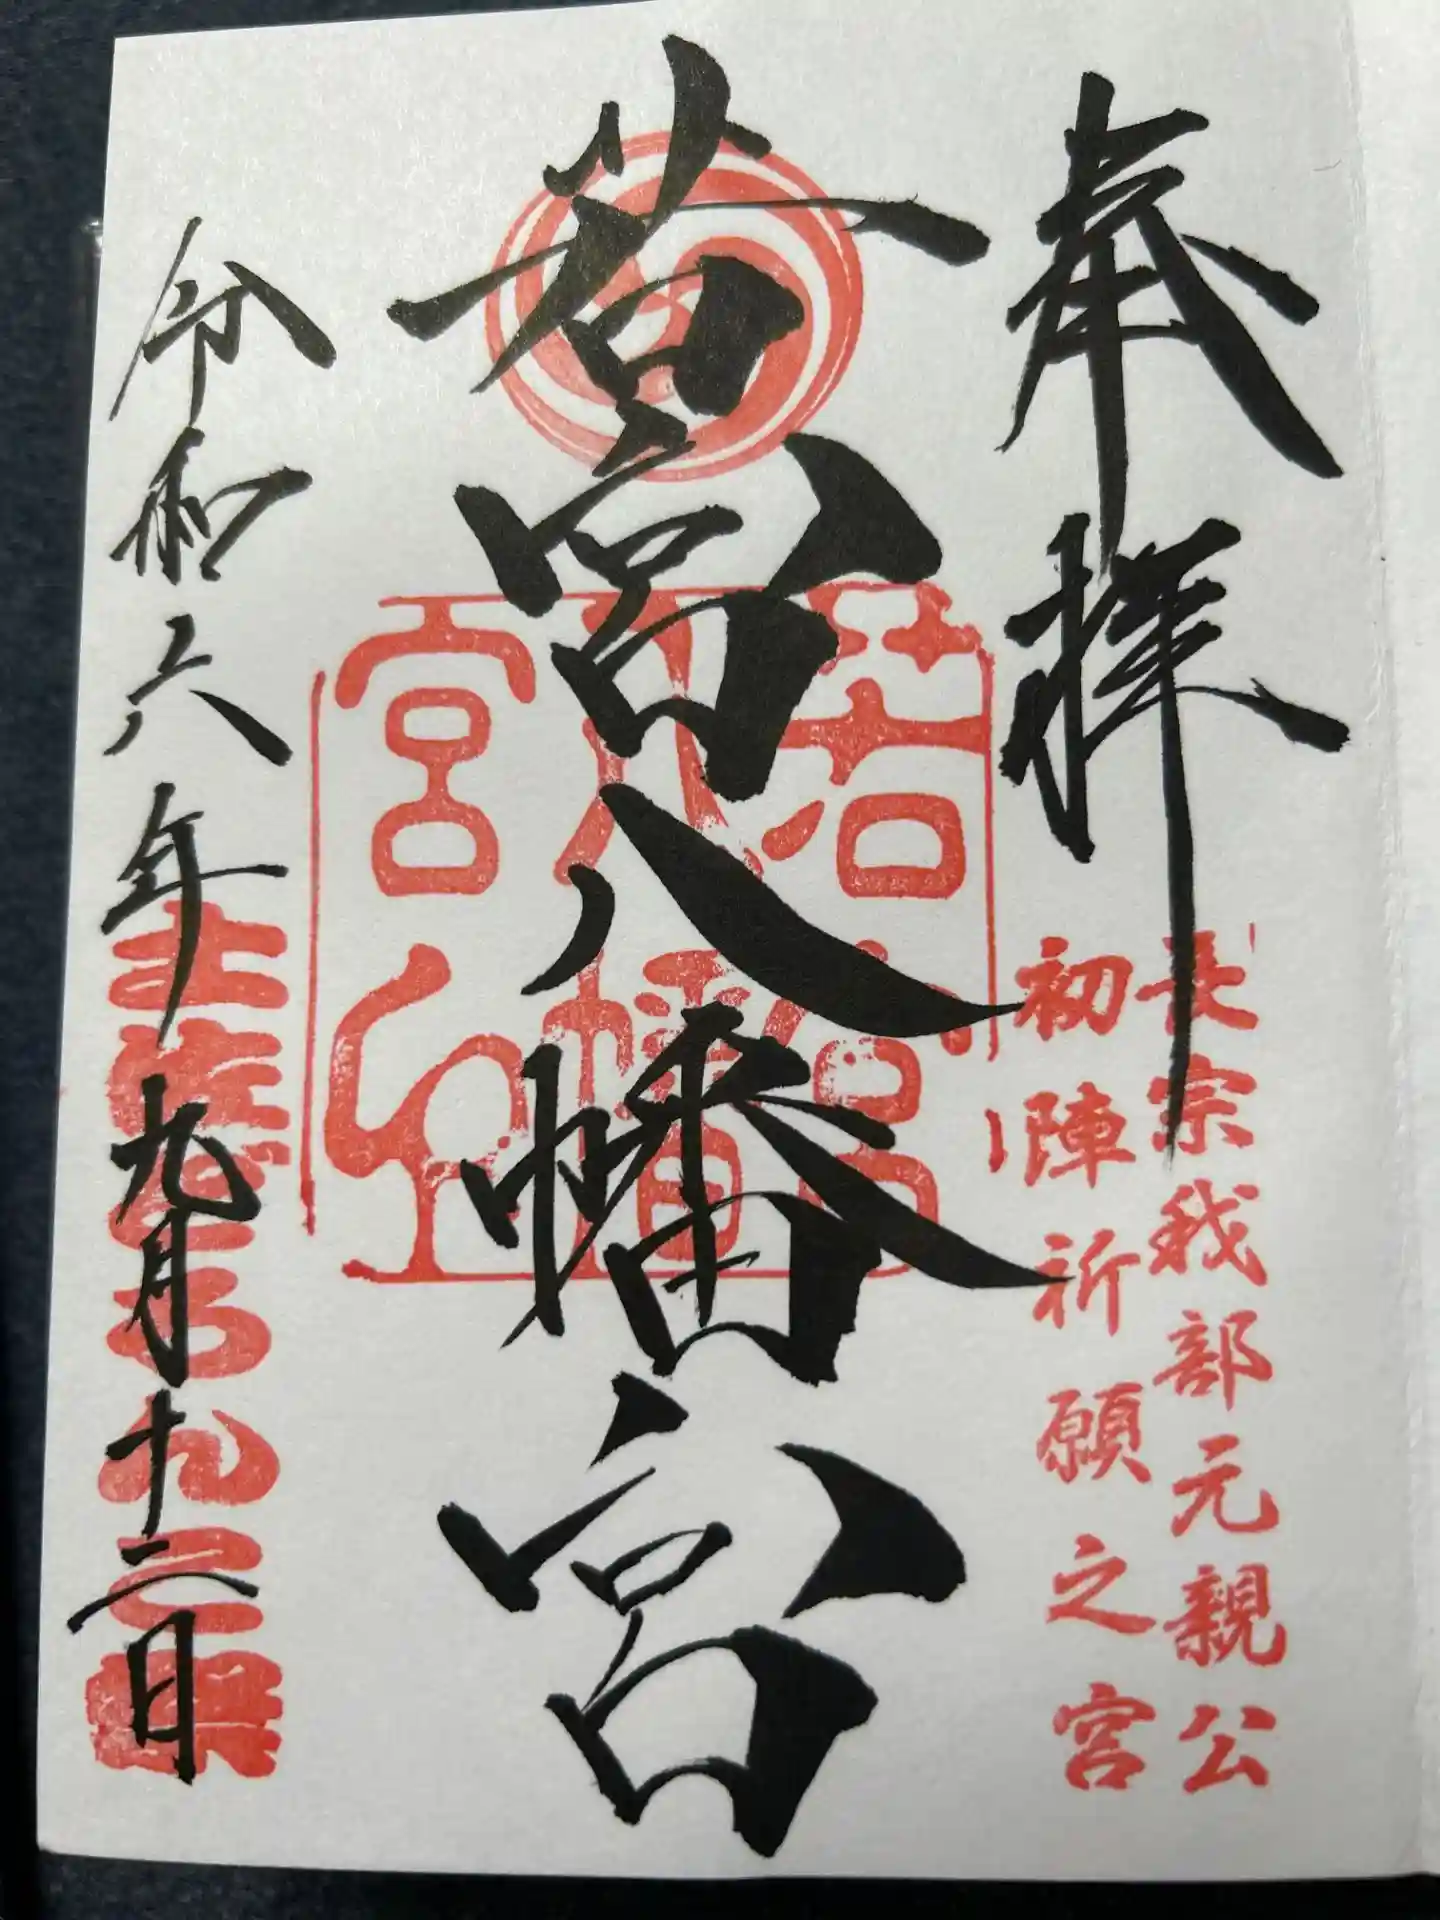 奉拝
長宗我部元親公
初陣祈願之宮
若宮八幡宮
若宮
八幡
宮印
令和六年九月十二日